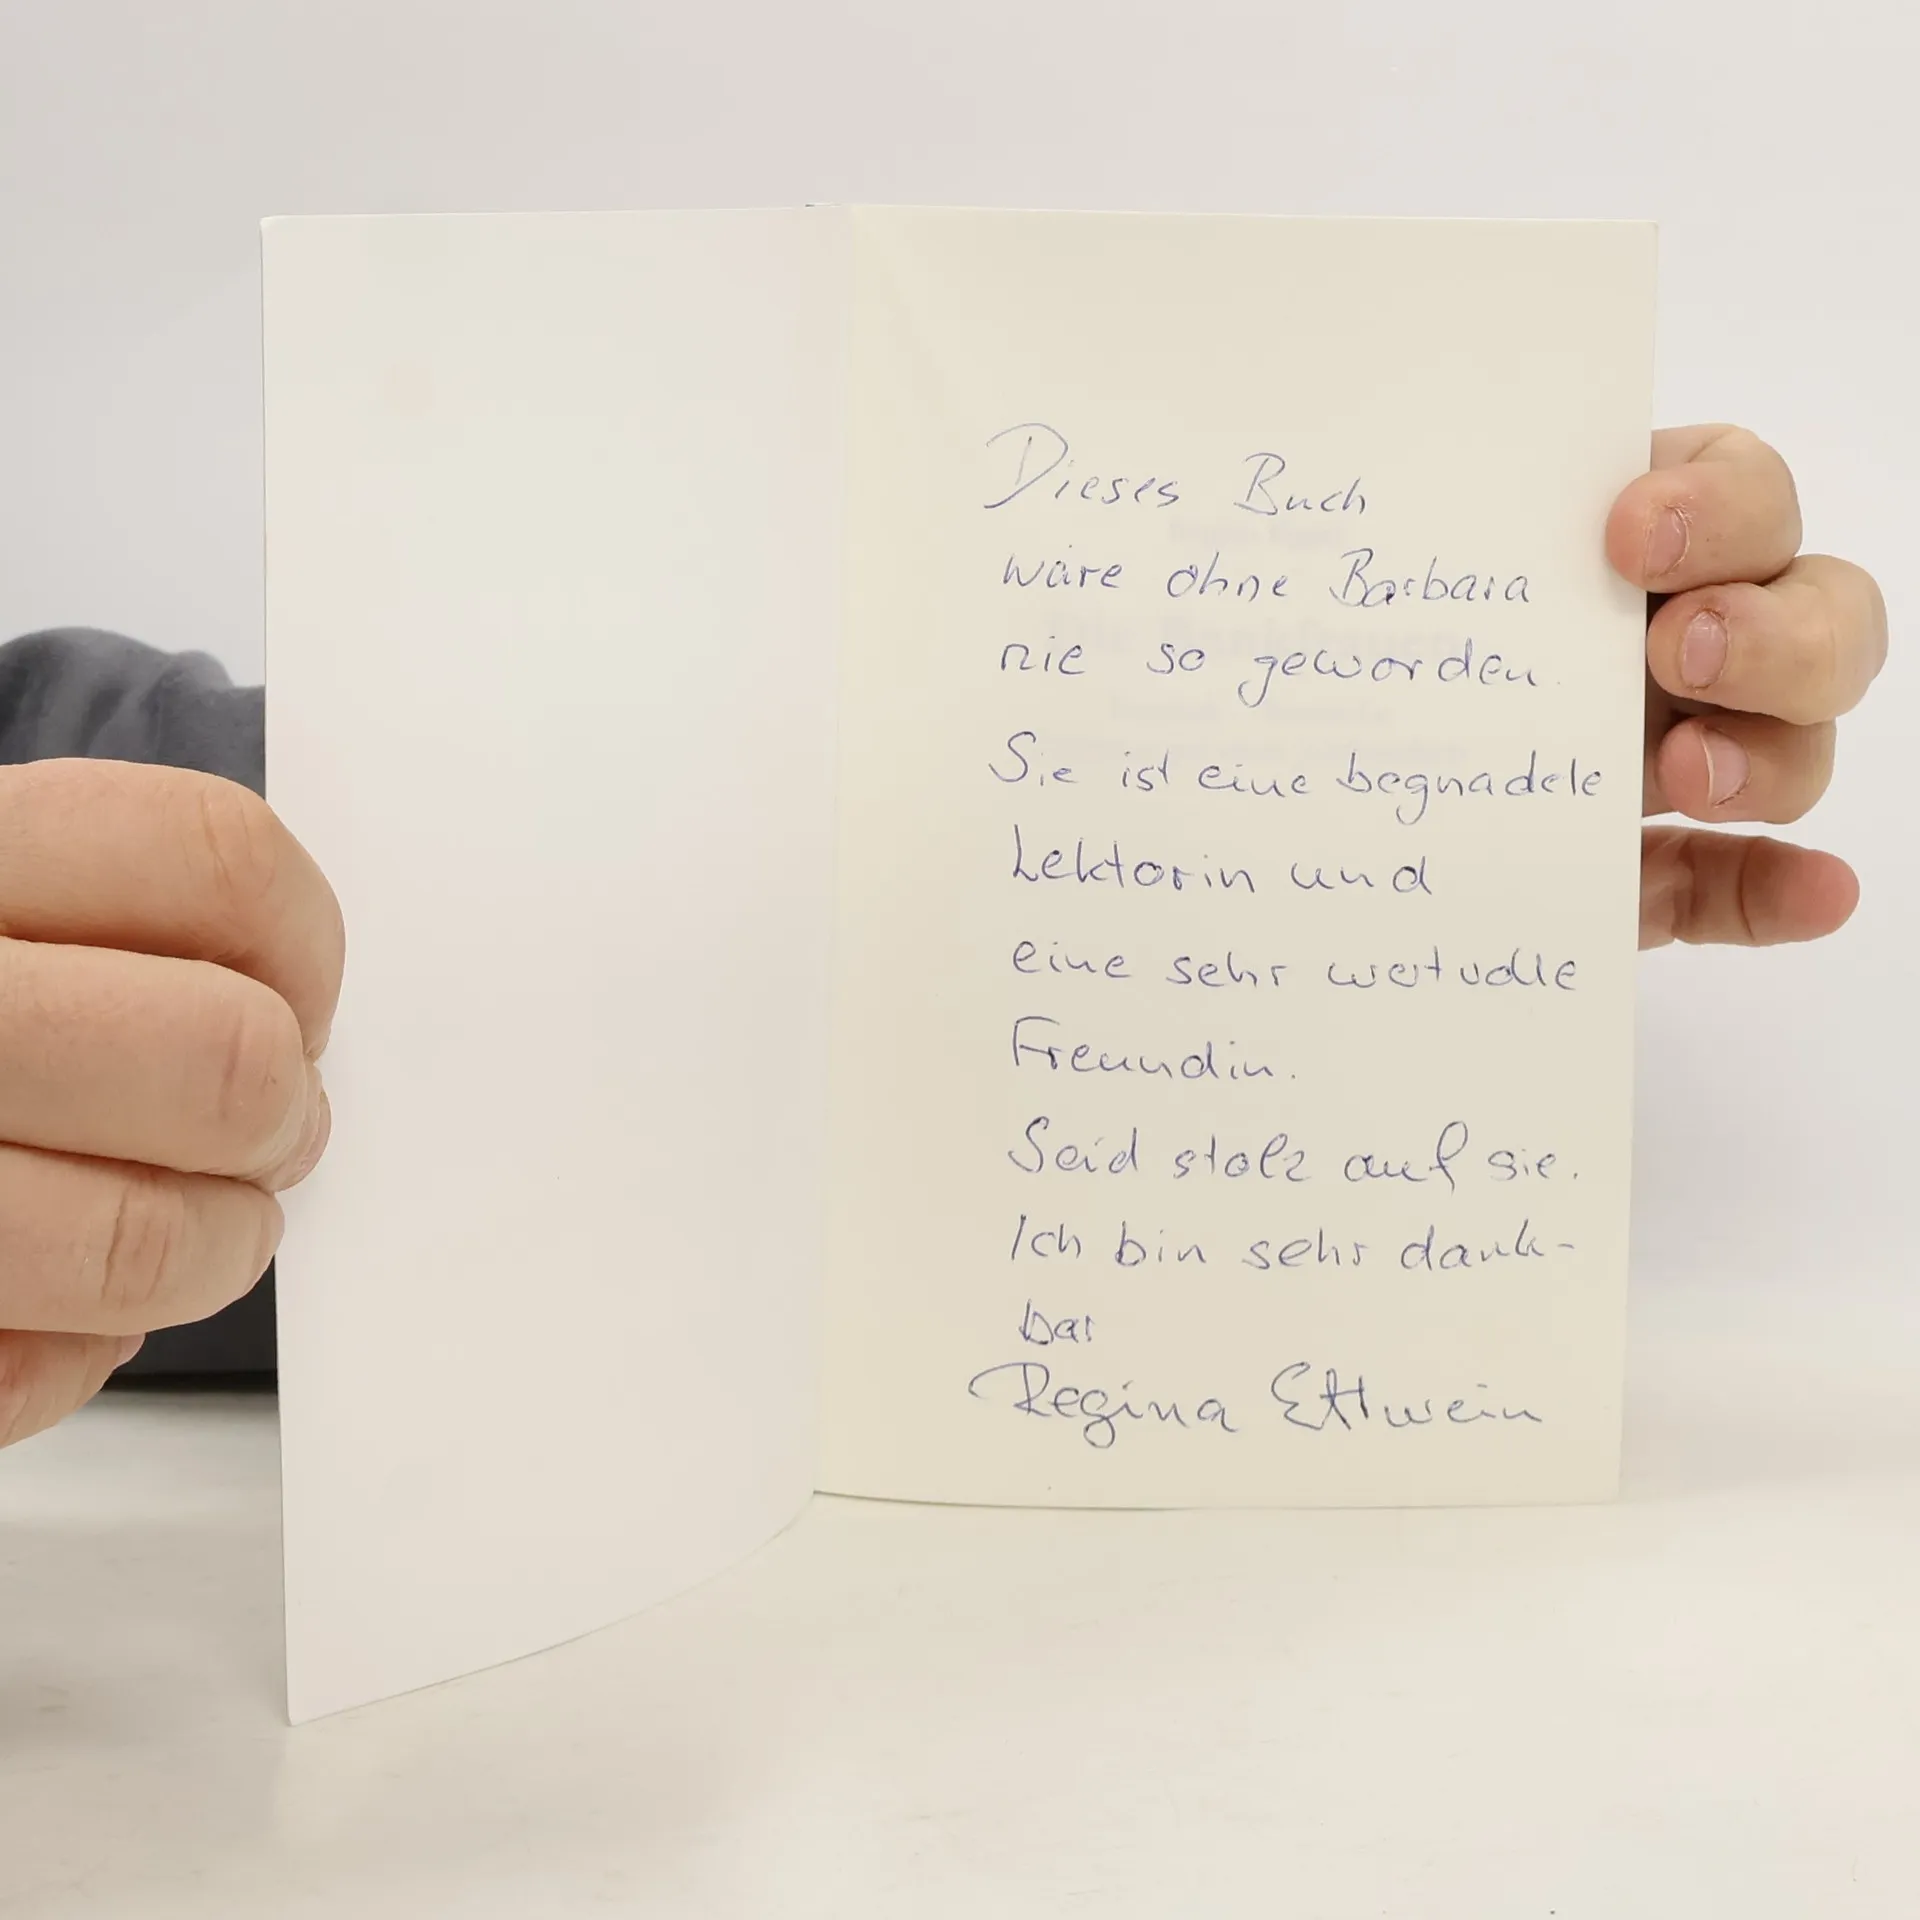 Dieses Buch
wäre ohne Barbara
nie so geworden.
Sie ist eine begnadete
Lektorin und
eine sehr wertvolle
Freundin.
Seid stolz auf sie.
Ich bin sehr dank-
bar
Regina Ettwein